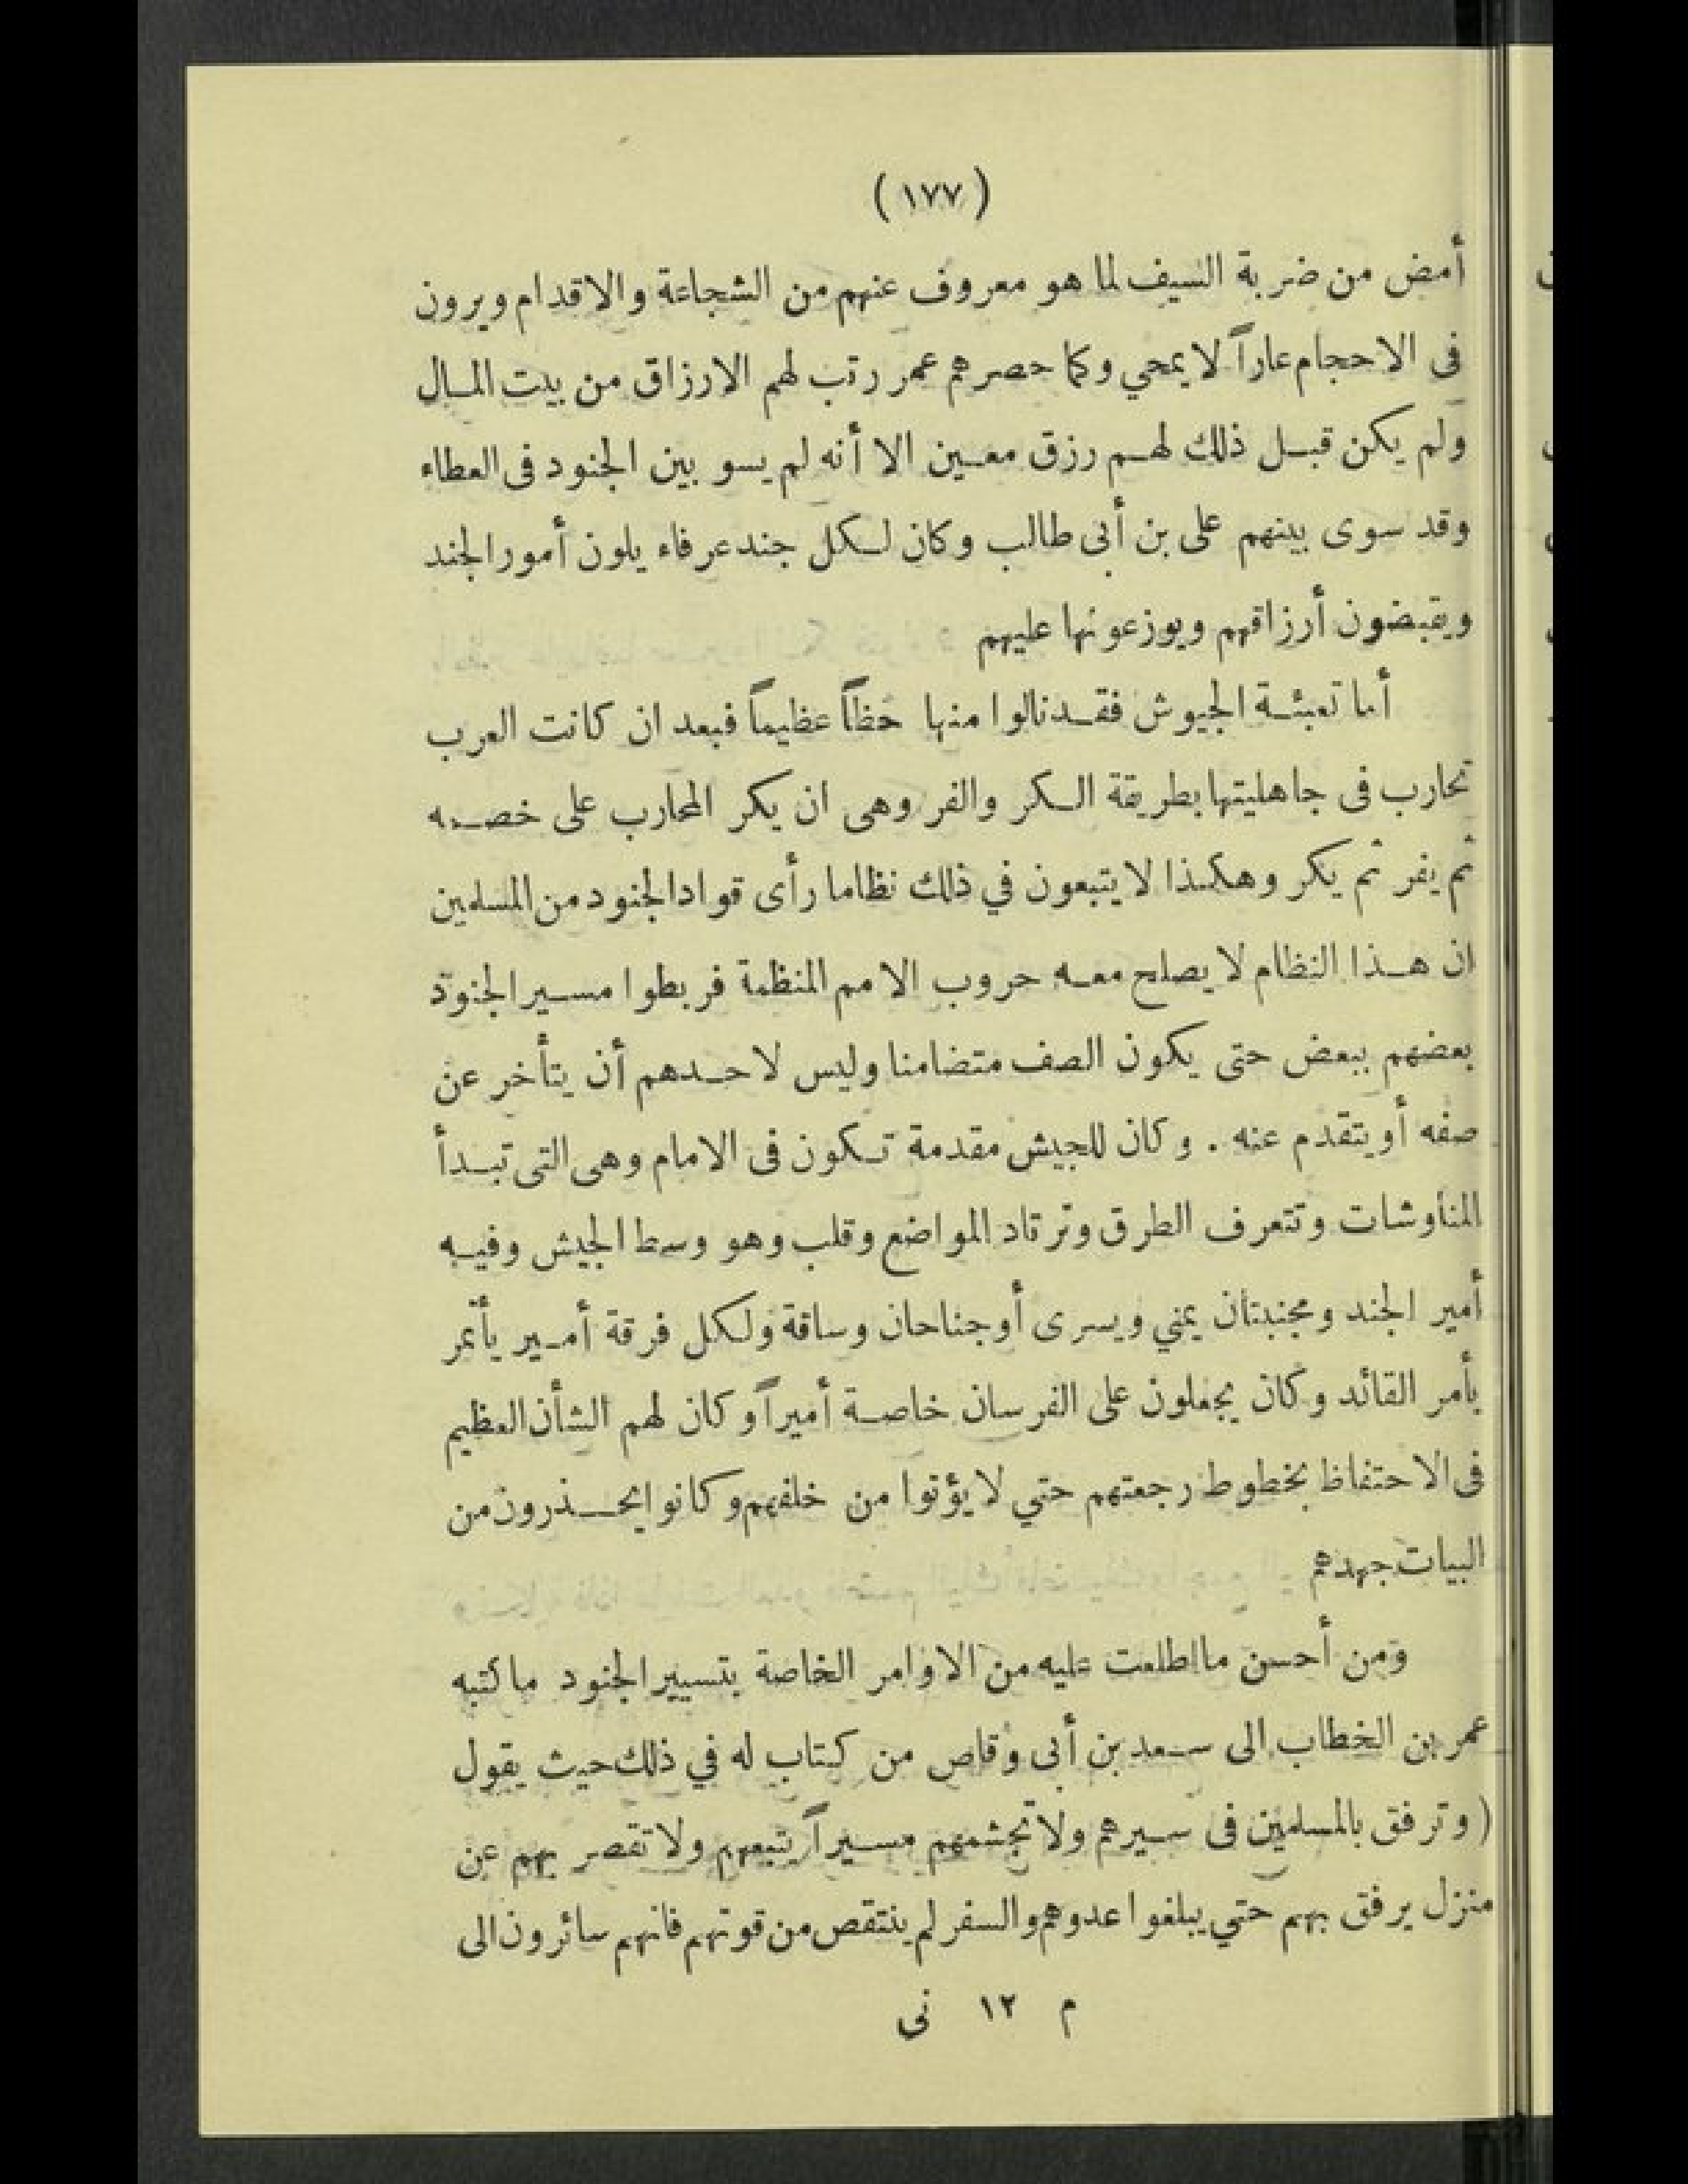 (١٧٧)
أمض من ضربة السيف لما هو معروف عنهم من الشجاعة والاقدام ويرون
فى الاحجام عاراً لا يمحي وكما حصرهم عمر رتب لهم الارزاق من بيت المال
ولم يكن قبل ذلك لهم رزق معين الا أنه لم يسو بين الجنود فى العطاء
وقد سوى بينهم على بن أبى طالب وكان لكل جند عرفاء يلون أمور الجند
ويقبضون أرزاقهم ويوزعونها عليهم
أما تعبئة الجيوش فقد نالوا منها حظاً عظيماً فبعد ان كانت العرب
تحارب فى جاهليتها بطريقة الكر والفر وهى ان يكر المحارب على خصمه
ثم يفر ثم يكر وهكذا لا يتبعون في ذلك نظاما رأى قواد الجنود من المسلمين
ان هذا النظام لا يصلح معه حروب الامم المنظمة فربطوا مسير الجنود
بعضهم ببعض حتى يكون الصف متضامنا وليس لاحدهم أن يتأخر عن
صفه أو يتقدم عنه . وكان للجيش مقدمة تكون فى الامام وهى التى تبدأ
المناوشات وتتعرف الطرق وترتاد المواضع وقلب وهو وسط الجيش وفيه
أمير الجند ومجنبتان يمني ويسرى أو جناحان وساقة ولكل فرقة أمير يأتمر
بأمر القائد وكان يجعلون على الفرسان خاصة أميراً وكان لهم الشأن العظيم
فى الاحتفاظ بخطوط رجعتهم حتي لا يؤتوا من خلفهم وكانوا يحذرون من
البيات جهدهم
ومن أحسن ما اطلعت عليه من الاوامر الخاصة بتسيير الجنود ما كتبه
عمر بن الخطاب الى سعد بن أبى وقاص من كتاب له في ذلك حيث يقول
(وترفق بالمسلمين فى سيرهم ولا تجشمهم مسيراً يتبعهم ولا تقصر بهم عن
منزل يرفق بهم حتي يبلغوا عدوهم والسفر لم ينتقص من قوتهم فانهم سائرون الى
م ١٢ نى